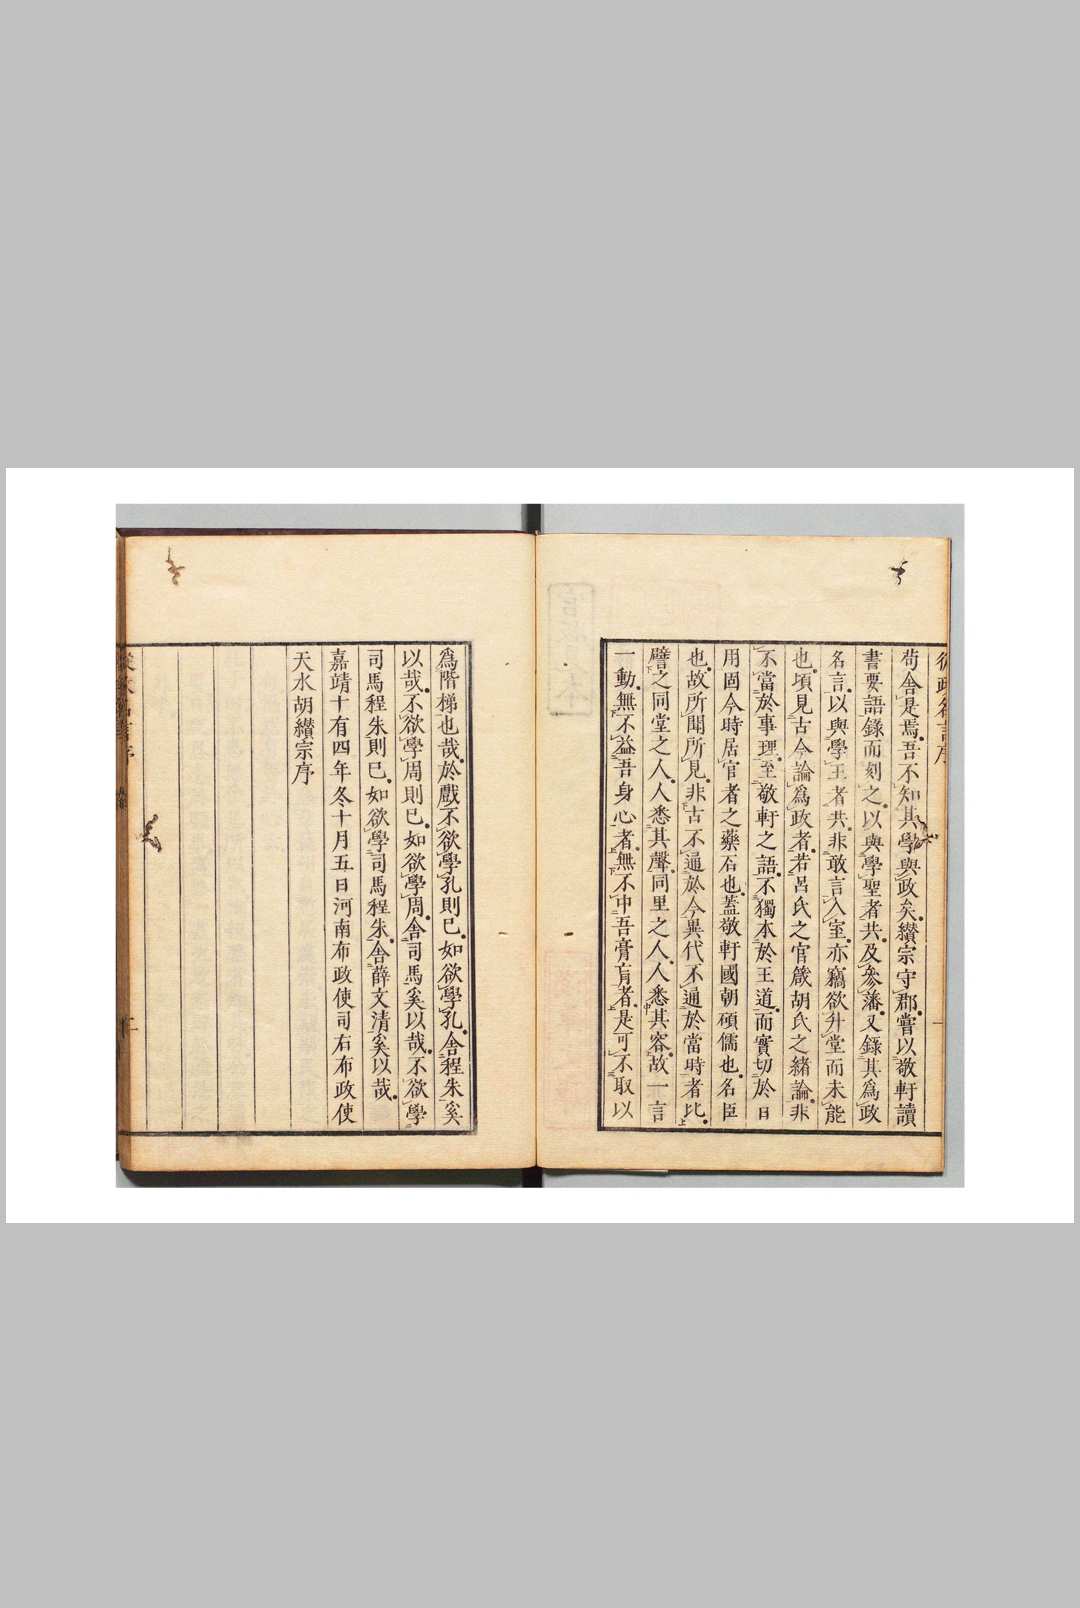 從政名言序
苟舍是焉吾不知其學與政矣纘宗守郡嘗以敬軒讀
書要語錄而刻之以與學聖者共及參藩又錄其為政
名言以與學王者共非敢言入室亦竊欲升堂而未能
也頃見古今論為政者若呂氏之官箴胡氏之緒論非
不當於事理至敬軒之語不獨本於王道而實切於日
用固今時居官者之藥石也蓋敬軒國朝碩儒也名臣
也故所聞所見非古不通於今異代不通於當時者比
譬之同堂之人人悉其聲同里之人人悉其容故一言
一動無不益吾身心者無不中吾膏肓者是可不取以
為階梯也哉於戲不欲學孔則已如欲學孔舍程朱奚
以哉不欲學周則已如欲學周舍司馬奚以哉不欲學
司馬程朱則已如欲學司馬程朱舍薛文清奚以哉
嘉靖十有四年冬十月五日河南布政使司右布政使
天水胡纘宗序
序
二